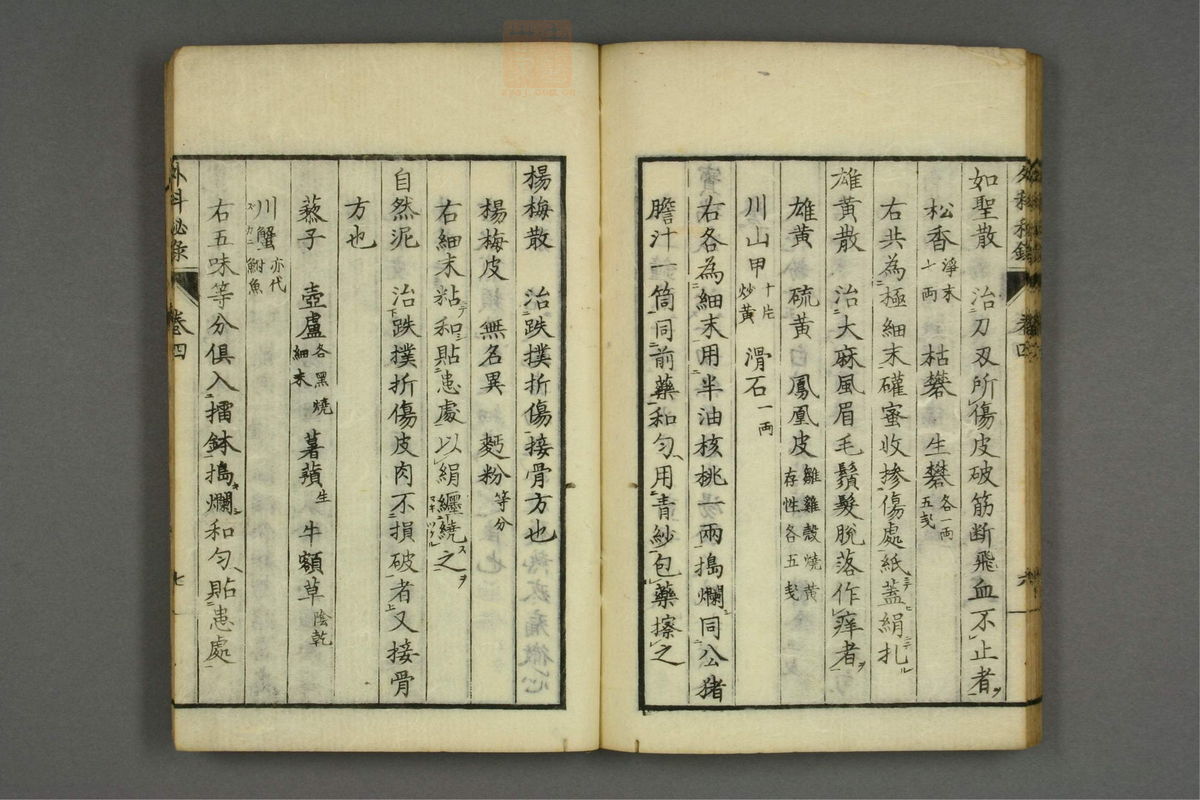 如聖散　治刀刃所傷皮破筋断飛血不止者ヲ
松香 淨末七両　枯礬　生礬 各一両五戔
右共為極細末礶蜜收摻傷處紙蓋絹扎
雄黄散　治大麻風眉毛鬚髮脫落作痒者ヲ
雄黄　硫黄　鳳凰皮 雛雞殼燒黄存性各五戔
川山甲 十片炒黄　滑石 一両
右各為細末用半油核桃一兩搗爛同公猪
膽汁一筒同前藥和匀用青紗包藥擦之
外科秘錄　卷四　六
楊梅散　治跌撲折傷接骨方也
楊梅皮　無名異　麪粉 等分
右細末粘和貼患處以絹纒繞之
自然泥　治跌撲折傷皮肉不損破者又接骨
方也
菾子　壺盧 各黑燒細末　薯蕷 生　牛額草 陰乾
川蟹 亦代鮒魚
右五味等分俱入擂鉢搗爛和匀貼患處
外科秘錄　卷四　七